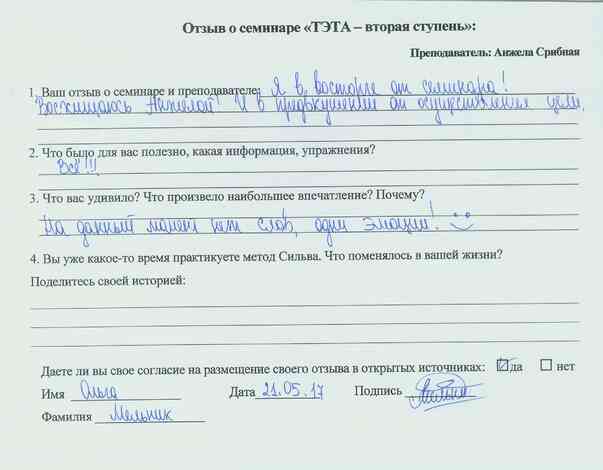 Отзыв о семинаре «ТЭТА – вторая ступень»:
Преподаватель: Анжела Срибная
1. Ваш отзыв о семинаре и преподавателе: Я в восторге от семинара!
Восхищаюсь Анжелой! И в предвкушении от осуществления цели.
2. Что было для вас полезно, какая информация, упражнения?
Всё!!!
3. Что вас удивило? Что произвело наибольшее впечатление? Почему?
На данный момент нет слов, одни эмоции!
4. Вы уже какое-то время практикуете метод Сильва. Что поменялось в вашей жизни?
Поделитесь своей историей:
Даете ли вы свое согласие на размещение своего отзыва в открытых источниках: да нет
Имя Ольга Дата 21.05.17 Подпись
Фамилия Мельник